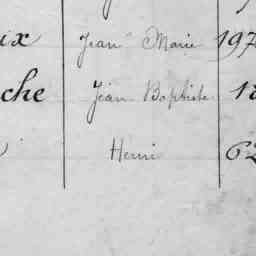 ix Jean Marie 197
che Jean Baptiste 18
Henri 62